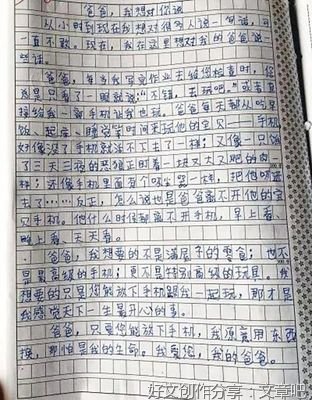 爸爸，我想对你说
从小时到现在我想对很多人说一句话，可一
直不敢。现在，我在这里想对我的爸爸说
些话。
爸爸，每当我写完作业去给您检查时，您
总是只看了一眼就说："不错，去玩吧。"或者直
接给我一部手机让我也玩。爸爸每天都从吃早
饭、起床、睡觉等时间来玩他的宝贝——手机
好像没了手机就活不下去了一样；又像一只饿
了三天三夜的恶狼正盯着一块又大又肥的肉一
样；还像手机里面有个吸尘器一样，把他吸进
去了……反正，怎么说也是爸爸离不开他的宝
贝手机。他什么时候都离不开手机，早上看、
晚上看、天天看。
爸爸，我想要的不是满屋子的零食；也不
是最高级的手机；更不是特别高级的玩具。我
想要的只是您能放下手机跟我一起玩，那才是
我感觉天下一生最开心的事。
爸爸，只要您能放下手机，我愿意用东西
换，那怕是我的生命。我爱您，我的爸爸。
好文创作分享：文章吧